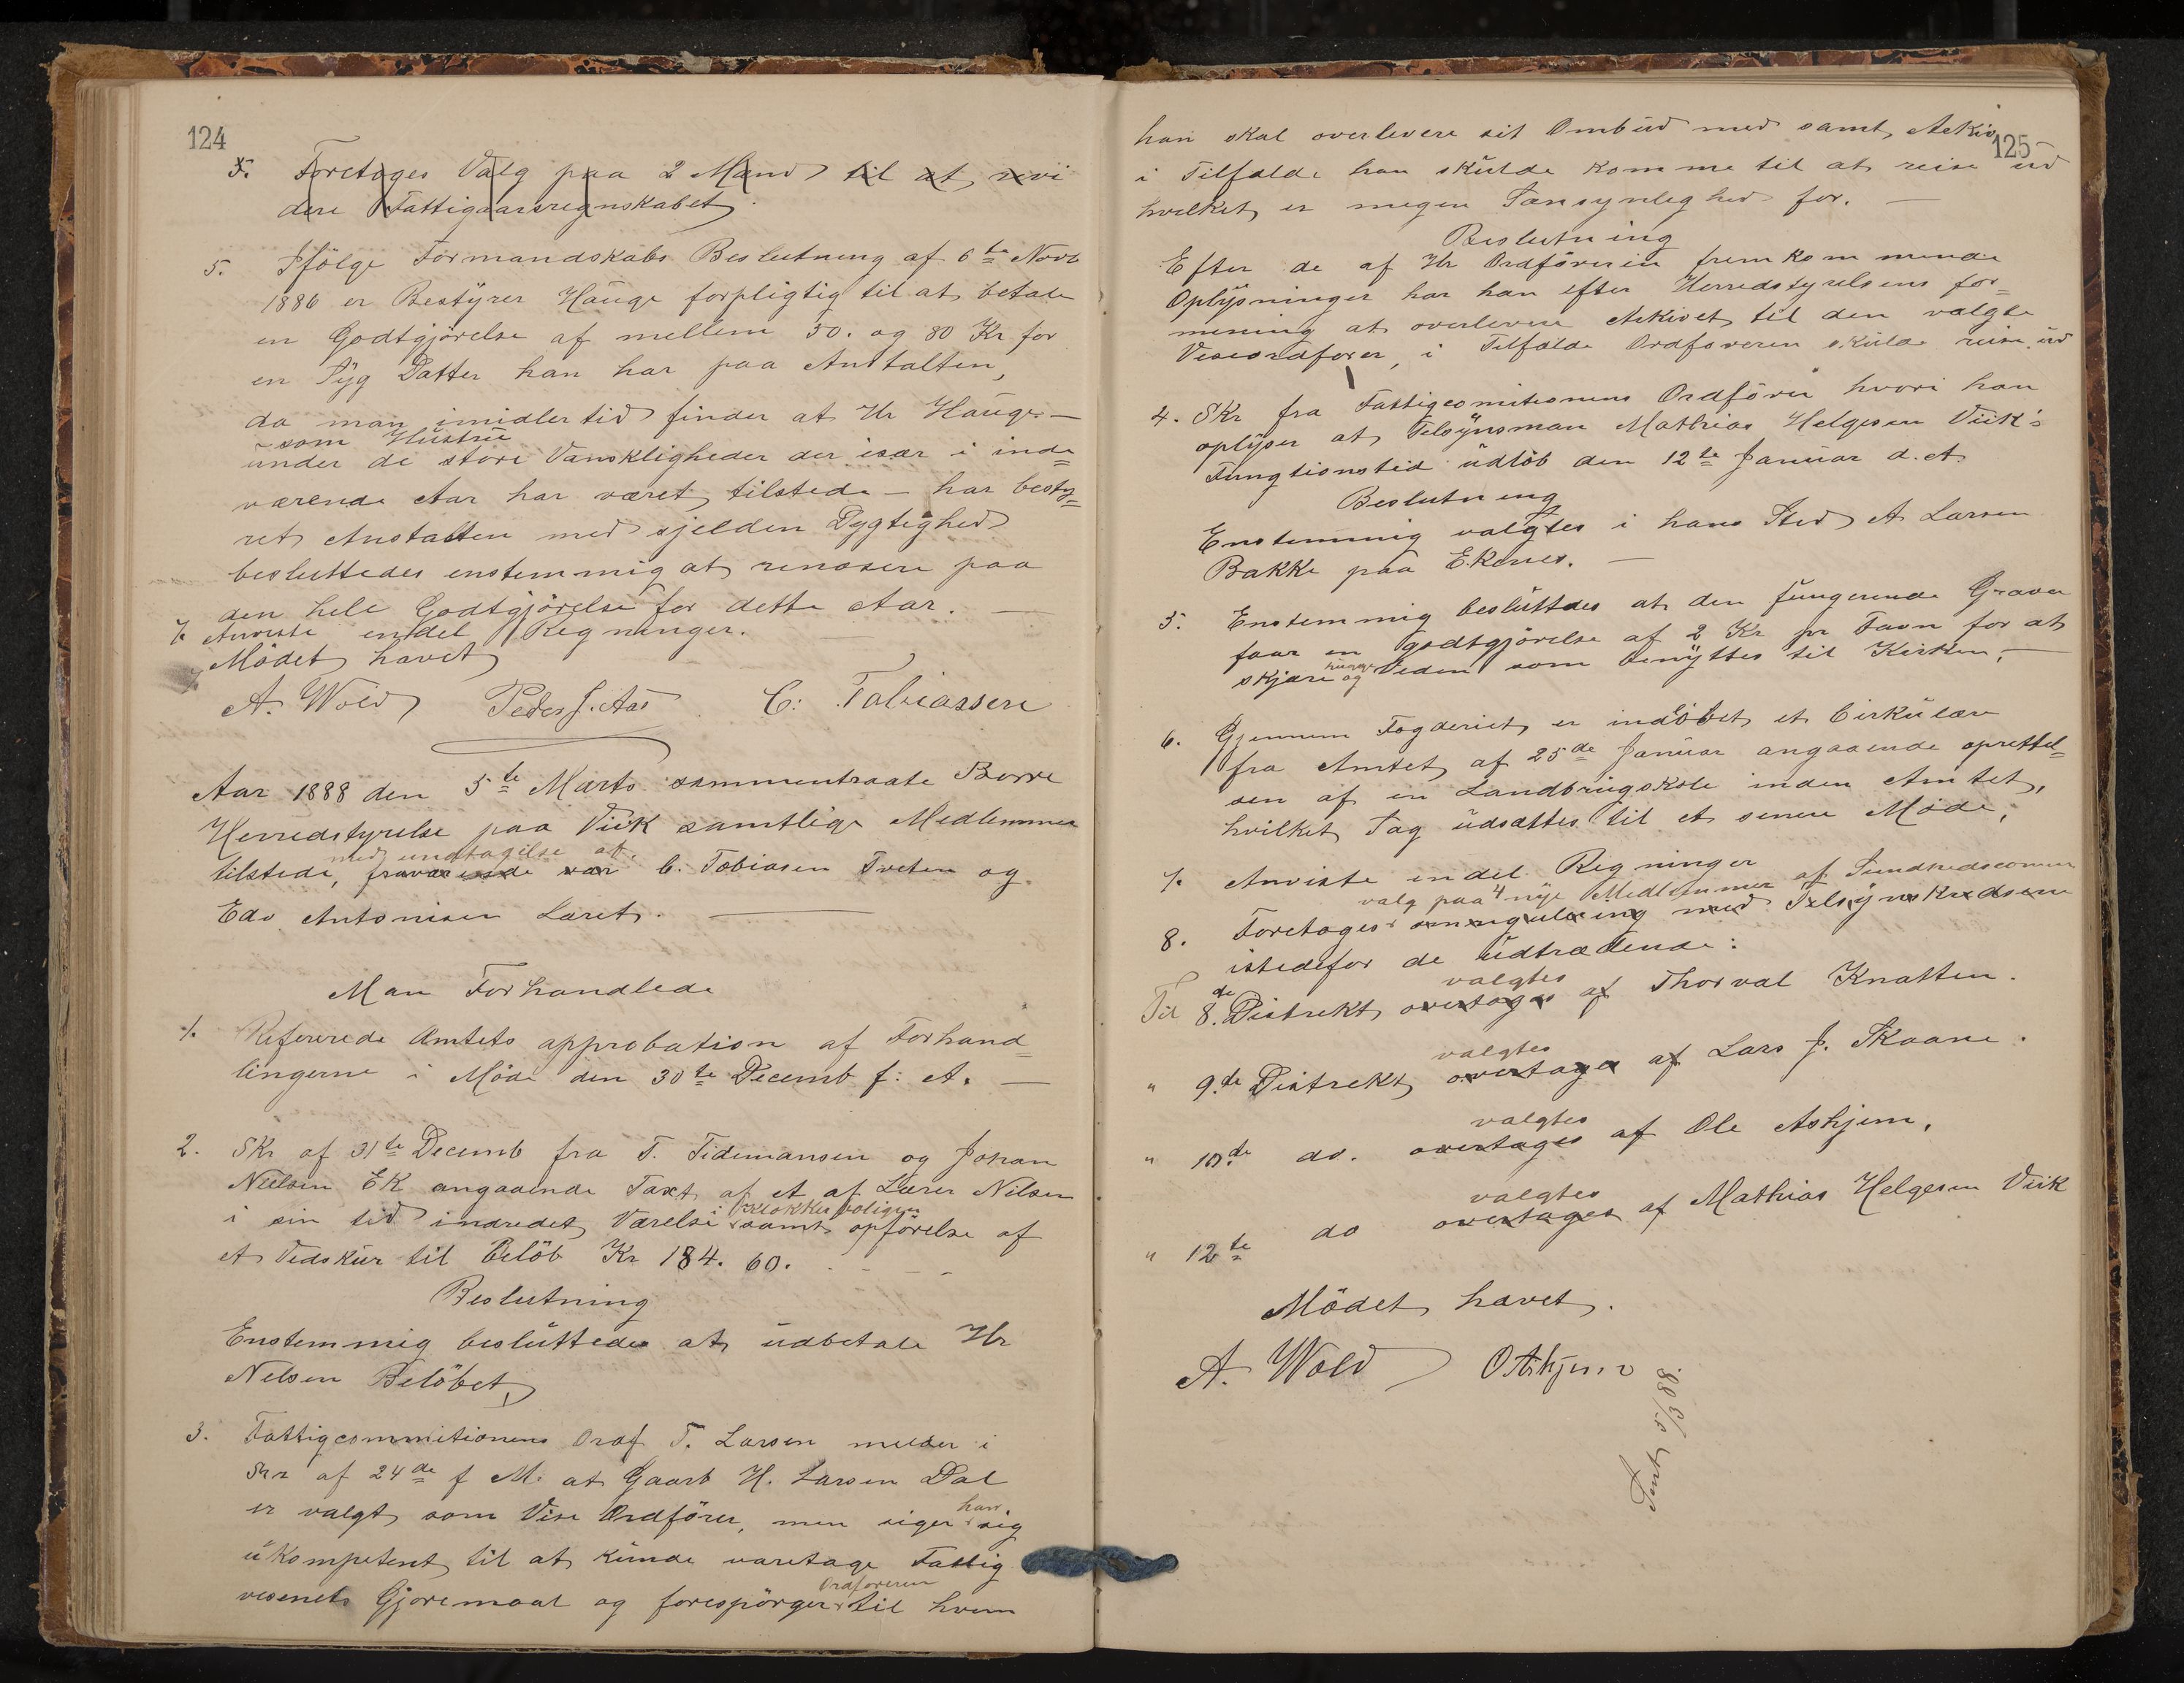 124
5. Foretages Valg paa 2 Mænd til at revi
dere Fattigaarsregnskabet.
5. Ifölge Formandskabs Beslutning af 6te Novb
1886 er Bestyrer Hauge forpligtig til at betale
en Godtgjörelse af mellem 50. og 80 Kr for
en Syg Datter han har paa Anstalten,
da man imidlertid finder at Hr Hauge —
som Hustrue
under de store Vanskligheder der især i inde=
værende Aar har været tilstede — har besty=
ret Anstalten med sjelden Dygtighed
besluttedes enstemmig at renosere paa
den hele Godtgjörelse for dette Aar. —
7. Anviste endel Regninger.
Mödet hævet
A. Wold Peder J. Aas C: Tobiassen
Aar 1888 den 5te Marts sammentraate Borre
Herredstyrelse paa Viik samtlige Medlemmer
med undtagelse af.
tilstede, fraværende var C. Tobiasen Tveten og
Edv Antonisen Laret. —
Man Forhandlede
1. Refererede Amtets approbation af Forhand=
lingerne i Möde den 30te Decemb f: A. —
2. Skr af 31te Decemb fra T. Tidemansen og Johan
Nielsen EK angaaende Taxt af et af Lærer Nilsen
i Klokkerboligen
i sin tid indredet Værelse samt opförelse af
et Vedskur til Belöb Kr 184. 60.
Beslutning
Enstemmig besluttedes at udbetale Hr
Nelsen Belöbet,
3. Fattigcommitionens Ordf T. Larsen melder i
Skr af 24de f M. at Gaarb H. Larsen Dal
han
er valgt som Vise Ordförer, men siger sig
ukompetent til at kunde varetage Fattig
Ordföreren
vesenets Gjöremaal og forespörger til hvem
125
han skal overlevere sit Ombud med samt Arkiv
i Tilfælde han skulde komme til at reise ud
hvilket er megen Sansynleghed for. —
Beslutning
Efter de af Hr Ordföreren fremkommende
Oplysninger har han efter Herredstyrelsens for=
mening at overlevere Arkivet til den valgte
Viseordförer, i Tilfælde Ordföreren skulde reise ud
4. Skr fra Fattigcomitionens Ordförer hvori han
oplyser at Tilsynsman Mathias Helgesen Viik's
Fungtionstid udlöb den 12te Januar d. A.
Beslutning
Enstemmig valgtes i hans Sted A Larsen
Bakke paa Ekenes. —
5. Enstemmig besluttdes at den fungerende Graver
faar en godtgjörelse af 2 Kr pr Favn for at
hugge
skjære og Veden som benyttes til Kirken, —
6. Gjennem Fogderiet er indlöbet et Cirkulære
fra Amtet af 25de Januar angaaende oprettel=
sen af en Landbrugskole inden Amtet,
hvilket Sag udsattes til et senere Möde,
7. Anviste endel Regninger
valg paa 4 nye Medlemmer af Sundhedscomm
8. Foretages omregulering med Tilsynskredsene
istedefor de udtrædende:
valgtes
Til 8.de Distrekt overtages af Thorval Knatten.
valgtes
" 9.de Distrekt overtages af Lars J. Skaane.
valgtes
" 10.de do. overtages af Ole Askjem,
valgtes
" 12te do overtages af Mathias Helgesen Viik
Mödet hævet.
A. Wold O Askjem
Sent 5/3 88.